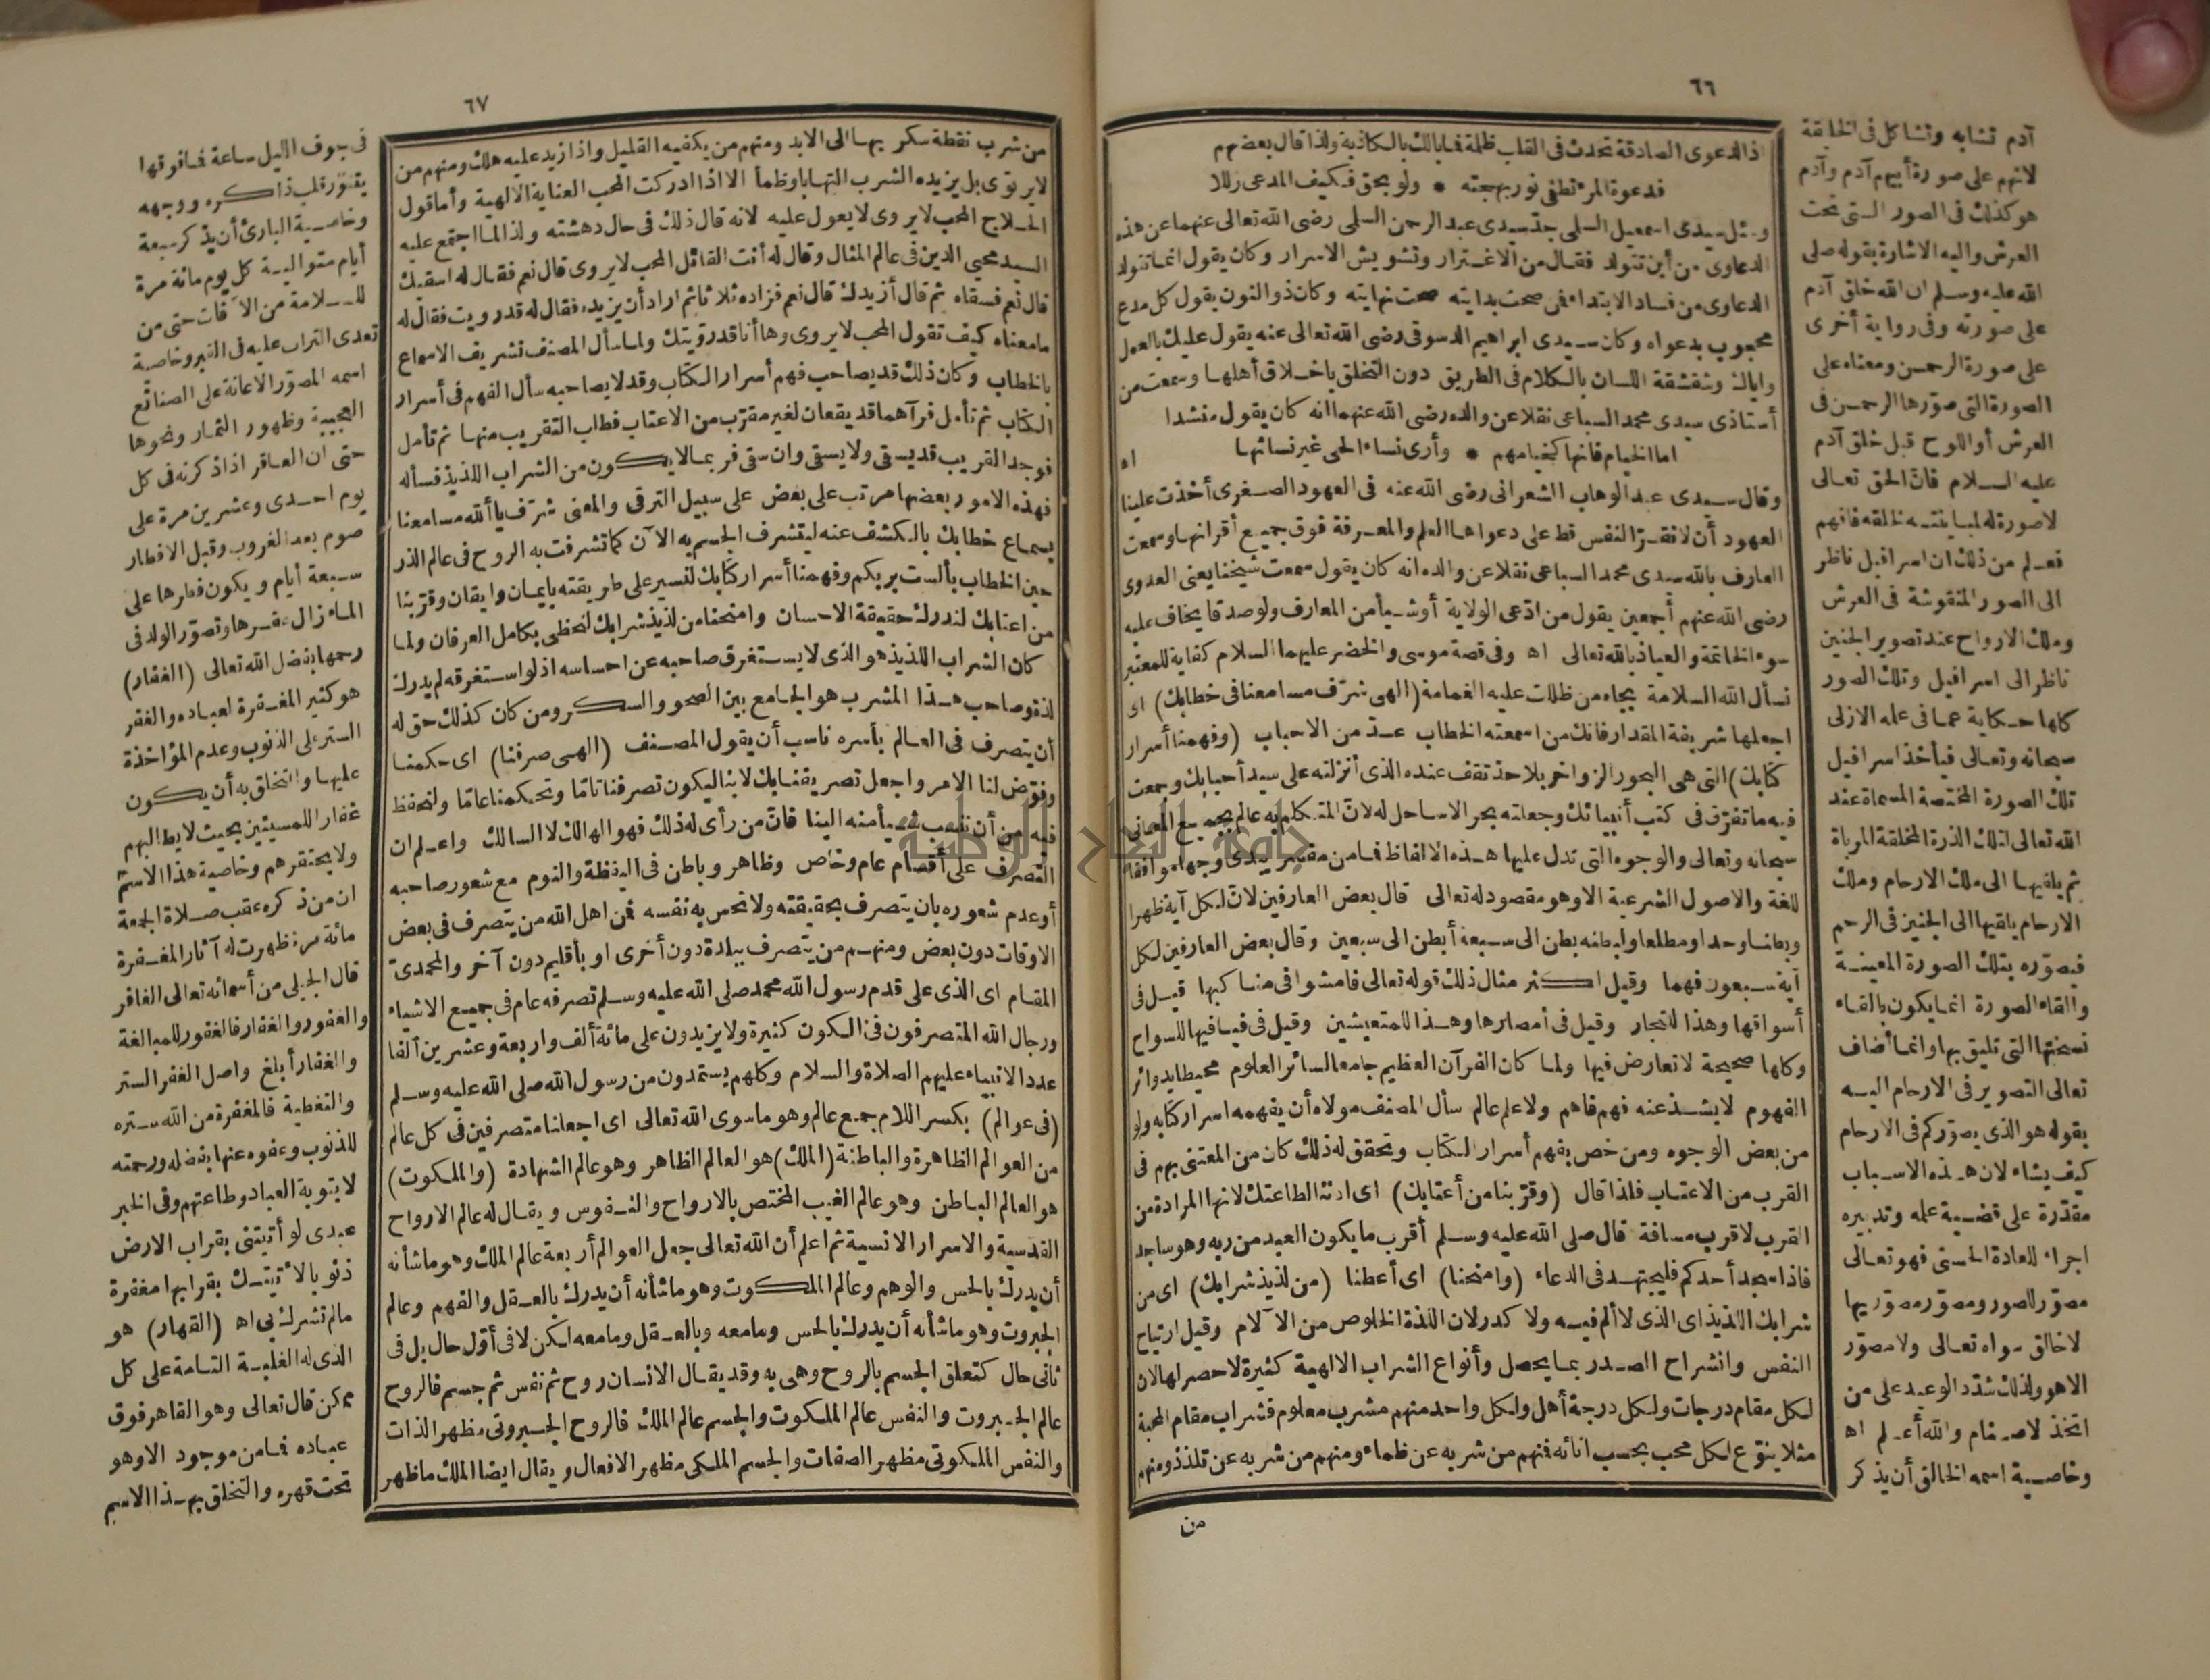 ٦٦
اذ الدعوى الصادقة تحدث فى القلب ظلمة فما بالك بالكاذبة ولذا قال بعضهم
فدعوة المرء تطفى نور بهجته * ولو بحق فكيف المدعى زللا
وسئل سيدى اسمعيل السلمى جد سيدى عبد الرحمن السلمى رضى الله تعالى عنهما عن هذه
الدعاوى من أين تتولد فقال من الاغترار وتشويش الاسرار وكان يقول انما تتولد
الدعاوى من فساد الابتداء فمن صحت بدايته صحت نهايته وكان ذو النون يقول كل مدع
محجوب بدعواه وكان سيدى ابراهيم الدسوقى رضى الله تعالى عنه يقول عليك بالعمل
واياك وشقشقة اللسان بالكلام فى الطريق دون التخلق باخلاق أهلها وسمعت من
أستاذى سيدى محمد السباعى نقلا عن والده رضى الله عنهما انه كان يقول منشدا
اما الخيام فانها كخيامهم * وأرى نساء الحى غير نسائها اه
وقال سيدى عبد الوهاب الشعرانى رضى الله عنه فى العهود الصغرى أخذت علينا
العهود أن لا نقر النفس قط على دعواها العلم والمعرفة فوق جميع أقرانها وسمعت
العارف بالله سيدى محمد السباعى نقلا عن والده انه كان يقول سمعت شيخنا يعنى العدوى
رضى الله عنهم أجمعين يقول من ادعى الولاية أو شيأ من المعارف ولو صدقا يخاف عليه
سوء الخاتمة والعياذ بالله تعالى اه وفى قصة موسى والخضر عليهما السلام كفاية للمعتبر
نسأل الله السلامة بجاه من ظللت عليه الغمامة (الهى شرّف مسامعنا فى خطابك) اى
اجعلها شريفة المقدار فانك من اسمعته الخطاب عدّ من الاحباب (وفهمنا أسرار
كتابك) التى هى البحور الزواخر بلا حد تقف عنده الذى أنزلته على سيد أحبابك وجمعت
فيه ما تفرّق فى كتب أنبيائك وجعلته بحر الاساحل له لانّ المتكلم به عالم بجميع المعانى
سبحانه وتعالى والوجوه التى تدل عليها هذه الالفاظ فما من مفسر يبدى وجها موافقا
للغة والاصول الشرعية الا وهو مقصود له تعالى قال بعض العارفين لانّ لكل آية ظهرا
وبطنا وحدا ومطلعا ولبطنه بطن الى سبعة أبطن الى سبعين وقال بعض العارفين لكل
آية سبعون فهما وقيل اكثر مثال ذلك قوله تعالى فامشوا فى مناكبها قيل فى
أسواقها وهذا للتجار وقيل فى أمصارها وهذا للمتعيشين وقيل فى فيافيها للسواح
وكلها صحيحة لا تعارض فيها ولما كان القرآن العظيم جامعا لسائر العلوم محيطا بدوائر
الفهوم لا يشذ عنه فهم فاهم ولا علم عالم سأل المصنف مولاه أن يفهمه اسرار كتابه ولو
من بعض الوجوه ومن خص بفهم أسرار الكتاب وتحقق له ذلك كان من المعتنى بهم فى
القرب من الاعتاب فلذا قال (وقرّبنا من أعتابك) اى لطاعتك لانها المرادة من
القرب لا قرب مسافة قال صلى الله عليه وسلم أقرب ما يكون العبد من ربه وهو ساجد
فاذا سجد أحدكم فليجتهد فى الدعاء (وامنحنا) اى أعطنا (من لذيذ شرابك) اى من
شرابك اللذيذ اى الذى لا ألم فيه ولا كدر لان اللذة الخلوص من الآلام وقيل ارتياح
النفس وانشراح الصدر بما يحصل وأنواع الشراب الالهية كثيرة لا حصر لها لان
لكل مقام درجات ولكل درجة أهل ولكل واحد منهم مشرب معلوم فشراب مقام المحبة
مثلا ينوّع لكل محب بحسب انائه فمنهم من شربه عن ظماء ومنهم من شربه عن تلذذ ومنهم
من
آدم تشابه وتشاكل فى الخلقة
لانهم على صورة أبيهم آدم وآدم
هو كذلك فى الصور التى تحت
العرش واليه الاشارة بقوله صلى
الله عليه وسلم ان الله خلق آدم
على صورته وفى رواية أخرى
على صورة الرحمن ومعناه على
الصورة التى صوّرها الرحمن فى
العرش أو اللوح قبل خلق آدم
عليه السلام فانّ الحق تعالى
لا صورة له لمباينته لخلقه فافهم
فعلم من ذلك ان اسرافيل ناظر
الى الصور المنقوشة فى العرش
وملك الارواح عند تصوير الجنين
ناظر الى اسرافيل وتلك الصور
كلها حكاية عما فى علمه الازلى
سبحانه وتعالى فيأخذ اسرافيل
تلك الصورة المختصة المسماة عند
الله تعالى لتلك الذرة المخلقة المرباة
ثم يلقيها الى ملك الارحام وملك
الارحام يلقيها الى الجنين فى الرحم
فيصوّره بتلك الصورة المعينة
والقاء الصورة انما يكون بالقاء
نسختها التى تليق بها وانما أضاف
تعالى التصوير فى الارحام اليه
بقوله هو الذى يصوّركم فى الارحام
كيف يشاء لان هذه الاسباب
مقدّرة على قضية علمه وتدبيره
اجراء للعادة الحسنى فهو تعالى
مصوّر للصور ومصوّر مصوّريها
لا خالق سواه تعالى ولا مصوّر
الا هو ولذلك شدّد الوعيد على من
اتخذ الاصنام والله أعلم اه
وخاصية اسمه الخالق أن يذكر
٦٧
من شرب نقطة سكر بها الى الابد ومنهم من يكفيه القليل واذا زيد عليه هلك ومنهم من
لا يروى بل يزيده الشرب التهابا وظمأ الا اذا ادركت المحب العناية الالهية وأما قول
الحلاج المحب لا يروى لا يعول عليه لانه قال ذلك فى حال دهشته ولذا لما اجتمع عليه
السيد محيى الدين فى عالم المثال وقال له أنت القائل المحب لا يروى قال نعم فقال له اسقيك
قال نعم فسقاه ثم قال أزيدك قال نعم فزاده ثلاثا ثم اراد أن يزيده فقال له قد رويت فقال له
ما معناه كيف تقول المحب لا يروى وها أنا قد رويتك ولما سأل المصنف تشريف الاسماع
بالخطاب وكان ذلك قد يصاحب فهم أسرار الكتاب وقد لا يصاحبه سأل الفهم فى أسرار
الكتاب ثم تأمل فرآهما قد يقعان لغير مقرّب من الاعتاب فطلب التقريب منها ثم تأمل
فوجد القريب قد يسقى ولا يستقى وان سقى فربما لا يكون من الشراب اللذيذ فسأله
فهذه الامور بعضها مرتب على بعض على سبيل الترقى والمعنى شرّف يا ألله مسامعنا
بسماع خطابك بالكشف عنه ليتشرف الجسم به الآن كما تشرفت به الروح فى عالم الذر
حين الخطاب بألست بربكم وفهمنا أسرار كتابك لنسير على طريقته بايمان وايقان وقرّبنا
من اعتابك لندرك حقيقة الاحسان وامنحنا من لذيذ شرابك لنحظى بكامل العرفان ولما
كان الشراب اللذيذ هو الذى لا يستغرق صاحبه عن احساسه اذ لو استغرقه لم يدرك
لذة وصاحب هذا المشرب هو الجامع بين الصحو والسكر ومن كان كذلك حق له
أن يتصرف فى العالم بأسره ناسب أن يقول المصنف (الهى صرفنا) اى حكمنا
وفوّض لنا الامر واجعل تصريفنا بك لا بنا ليكون تصرفنا تامّا وتحكمنا عامّا ولنحفظ
فيه من أن ننسب شيأ منه الينا فانّ من رأى له ذلك فهو الهالك لا السالك واعلم ان
التصرف على أقسام عام وخاص وظاهر وباطن فى اليقظة والنوم مع شعور صاحبه
أو عدم شعوره بان يتصرف بحقيقته ولا تحس به نفسه فمن اهل الله من يتصرف فى بعض
الاوقات دون بعض ومنهم من يتصرف ببلدة دون أخرى او بأقليم دون آخر والمحمدىّ
المقام اى الذى على قدم رسول الله محمد صلى الله عليه وسلم تصرفه عام فى جميع الاشياء
ورجال الله المتصرفون فى الكون كثيرة ولا يزيدون على مائة ألف واربعة وعشرين ألفا
عدد الانبياء عليهم الصلاة والسلام وكلهم يستمدون من رسول الله صلى الله عليه وسلم
(فى عوالم) بكسر اللام جميع عالم وهو ما سوى الله تعالى اى اجعلنا متصرفين فى كل عالم
من العوالم الظاهرة والباطنة (الملك) هو العالم الظاهر وهو عالم الشهادة (والملكوت)
هو العالم الباطن وهو عالم الغيب المختص بالارواح والنفوس ويقال له عالم الارواح
القدسية والاسرار الانسية ثم اعلم أن الله تعالى جعل العوالم أربعة عالم الملك وهو ما شأنه
أن يدرك بالحس والوهم وعالم الملكوت وهو ما شأنه أن يدرك بالعقل والفهم وعالم
الجبروت وهو ما شأنه أن يدرك بالحس وما معه وبالعقل وما معه لكن لا فى أوّل حال بل فى
ثانى حال كتعلق الجسم بالروح وهى به وقد يقال الانسان روح ثم نفس ثم جسم فالروح
عالم الجبروت والنفس عالم الملكوت والجسم عالم الملك فالروح الجبروتى مظهر الذات
والنفس الملكوتى مظهر الصفات والجسم الملكى مظهر الافعال ويقال ايضا الملك ما ظهر
فى جوف الليل ساعة فما فوقها
يتنوّر قلب ذاكره ووجهه
وخاصية البارئ أن يذكر سبعة
أيام متوالية كل يوم مائة مرة
للسلامة من الآفات حتى من
تعدى التراب عليه فى القبر وخاصية
اسمه المصوّر الاعانة على الصنائع
العجيبة وظهور الثمار ونحوها
حتى ان العاقر اذا ذكرته فى كل
يوم احدى وعشرين مرة على
صوم بعد الغروب وقبل الافطار
سبعة أيام ويكون فطرها على
الماء زال عقرها وتصوّر الولد فى
رحمها بفضل الله تعالى (الغفار)
هو كثير المغفرة لعباده والغفر
الستر على الذنوب وعدم المؤاخذة
عليها والتخلق به أن يكون
غفارا للمسيئين بحيث لا يطالبهم
ولا يحتقرهم وخاصية هذا الاسم
ان من ذكره عقب صلاة الجمعة
مائة مرة ظهرت له آثار المغفرة
قال الجيلى من أسمائه تعالى الغافر
والغفور والغفار فالغفور للمبالغة
والغفار أبلغ واصل الغفر الستر
والتغطية فالمغفرة من الله ستره
للذنوب وعفوه عنها بفضله ورحمته
لا بتوبة العباد وطاعتهم وفى الخبر
عبدى لو أتيتنى بقراب الارض
ذنوبا لأتيتك بقرابها مغفرة
مالم تشرك بى اه (القهار) هو
الذى له الغلبة التامة على كل
ممكن قال تعالى وهو القاهر فوق
عباده فما من موجود الا وهو
تحت قهره والتخلق بهذا الاسم
جامعة النجاح الوطنية